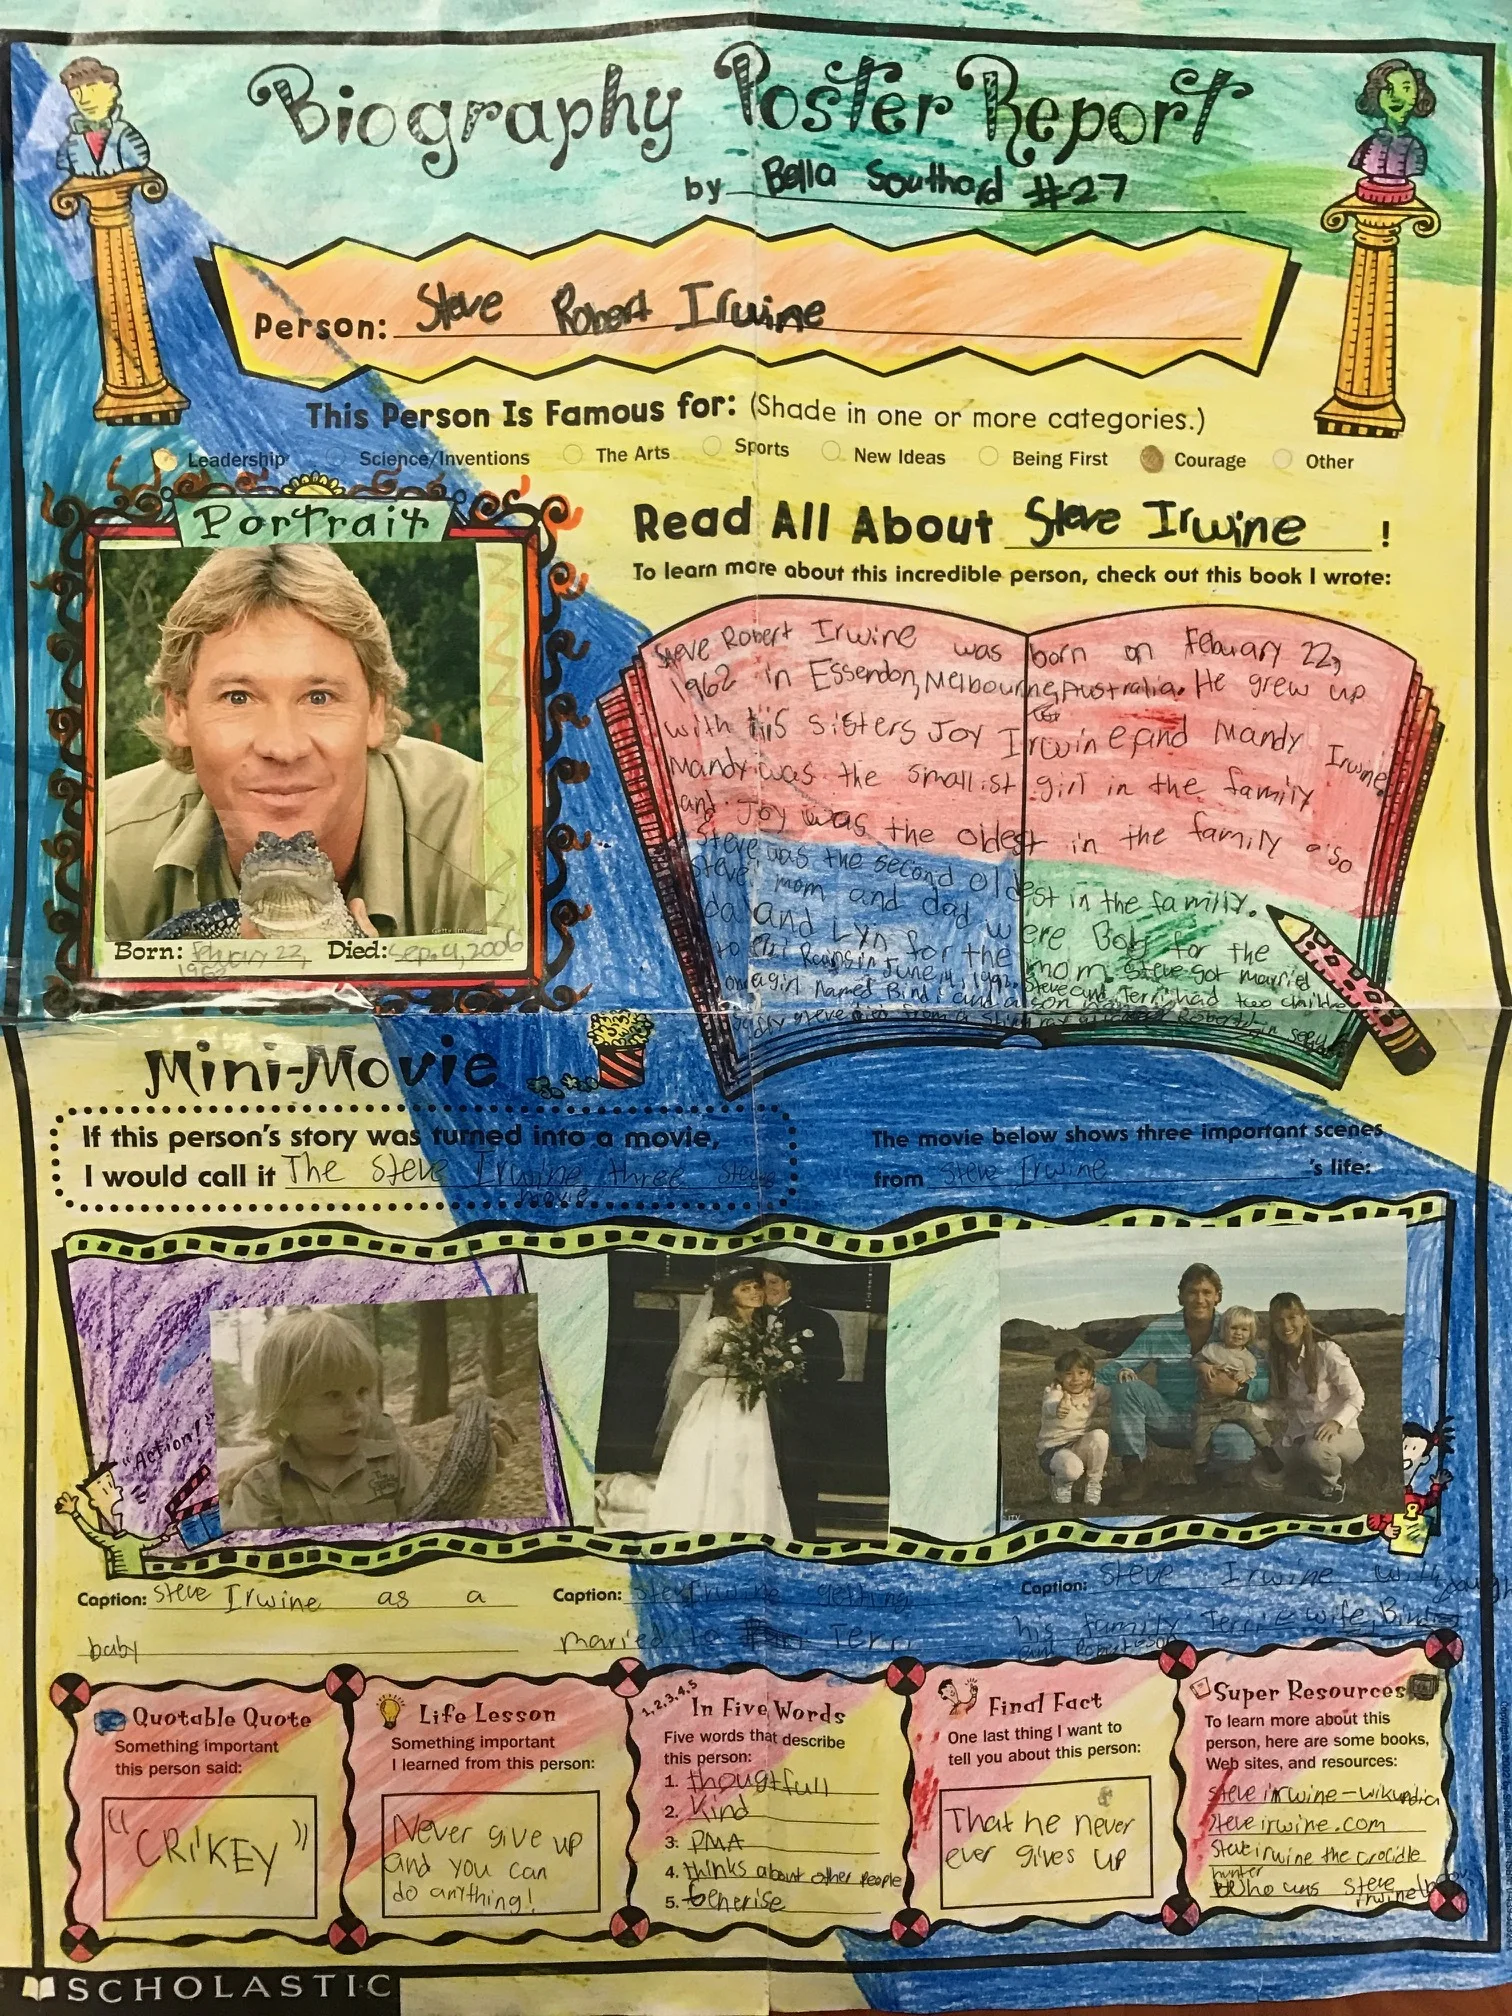 Biography Poster Report
by Bella Southard #27
Person: Steve Robert Irwine
This Person Is Famous for: (Shade in one or more categories.)
Leadership Science/Inventions The Arts Sports New Ideas Being First Courage Other
Portrait
Getty Images
Born: febuary 22, 1962 Died: Sep. 4, 2006
Read All About Steve Irwine !
To learn more about this incredible person, check out this book I wrote:
Steve Robert Irwine was born on Febuary 22,
1962 in Essendon, Melbourne, Australia. He grew up
with his sisters Joy Irwine and Mandy Irwine
Mandy was the smallist girl in the family
and Joy was the oldest in the family also
Steve was the second oldest in the family.
Steve mom and dad were Bob for the
dad and Lyn for the mom. Steve got married
to Terri Rains in June 4, 1992. Steve and Terri had two childre
one a girl named Bindi and a son
Mini-Movie
If this person's story was turned into a movie,
I would call it The Steve Irwine three stage
movie
The movie below shows three important scenes
from Steve Irwine 's life:
"Action!"
Caption: Steve Irwine as a
baby
Caption: Steve Irwine getting
maried to Terri
Caption: Steve Irwine with
his family Terri wife, Bindi
Quotable Quote
Something important
this person said:
"CRIKEY"
Life Lesson
Something important
I learned from this person:
Never give up
and you can
do anything!
1,2,3,4,5
In Five Words
Five words that describe
this person:
1. thougtfull
2. Kind
3. PMA
4. thinks about other people
5. Generise
Final Fact
One last thing I want to
tell you about this person:
That he never
ever gives up
Super Resources
To learn more about this
person, here are some books,
Web sites, and resources:
steve irwine-wikipidia
steveirwine.com
Steve irwine the crocidle
hunter
Who was Steve
Irwine
SCHOLASTIC